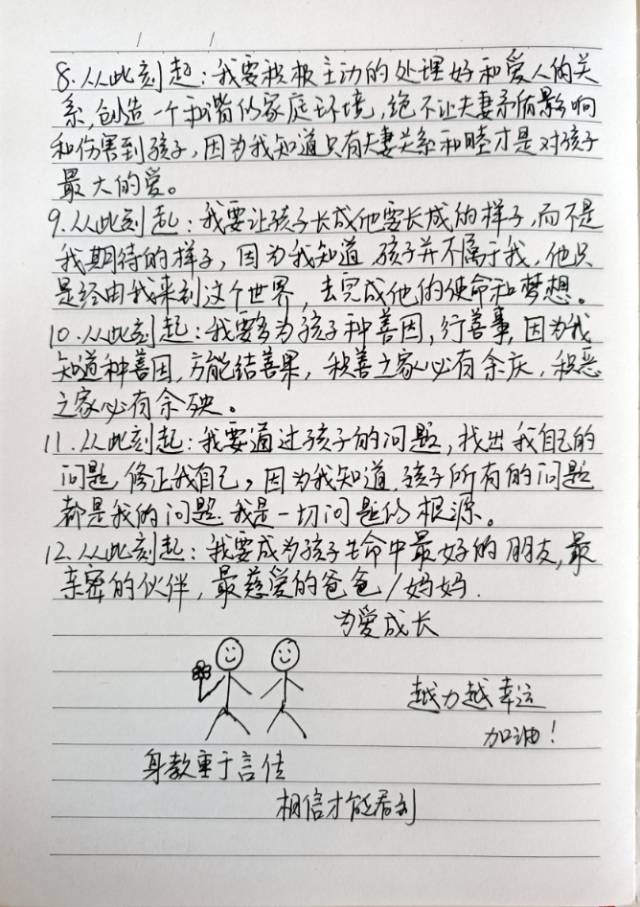 8.从此刻起：我要积极主动的处理好和爱人的关
系,创造一个和谐的家庭环境,绝不让夫妻矛盾影响
和伤害到孩子，因为我知道只有夫妻关系和睦才是对孩子
最大的爱。
9.从此刻起：我要让孩子长成他要长成的样子,而不是
我期待的样子，因为我知道 孩子并不属于我，他只
是经由我来到这个世界，去完成他的使命和梦想。
10.从此刻起：我要多为孩子种善因，行善事，因为我
知道种善因，方能结善果，积善之家必有余庆，积恶
之家必有余殃。
11.从此刻起：我要通过孩子的问题，找出我自己的
问题 修正我自己，因为我知道 孩子所有的问题
都是我的问题 我是一切问题的根源。
12.从此刻起：我要成为孩子生命中最好的朋友,最
亲密的伙伴，最慈爱的爸爸/妈妈.
为爱成长
越力越幸运
加油！
身教重于言传
相信才能看到